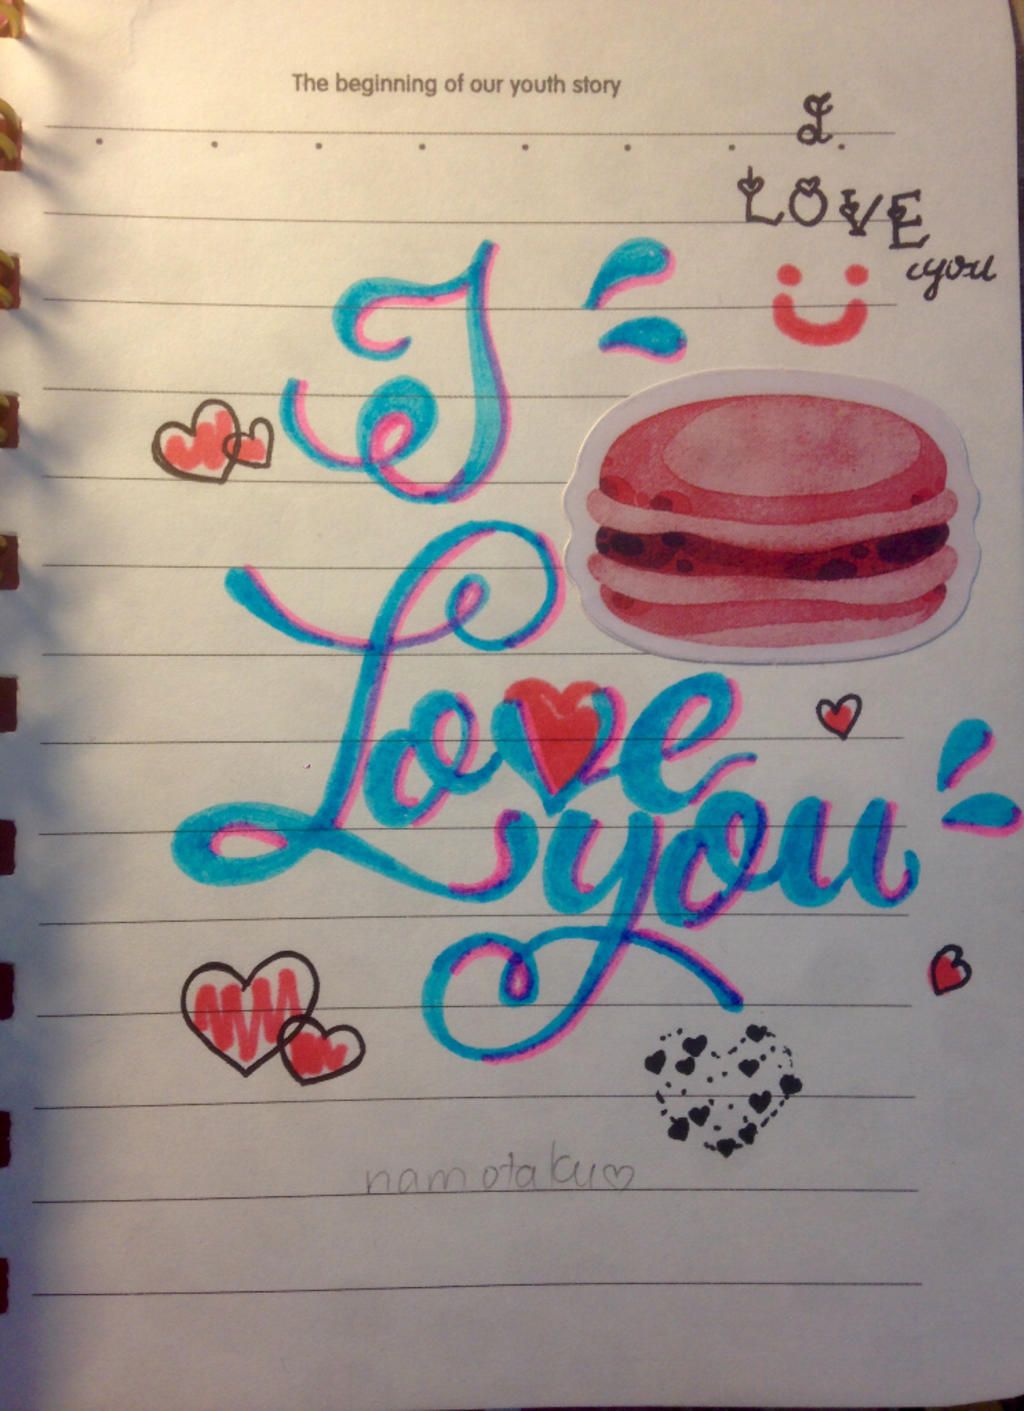 The beginning of our youth story
I
LOVE
you
I
Love
you
namotaku♡